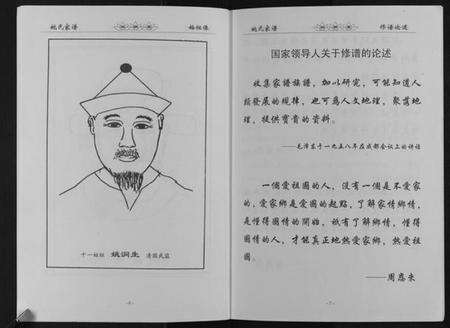 姚氏家谱
始祖像
十一始祖 姚洞生 清国武监
姚氏家谱
修谱论述
国家领导人关于修谱的论述
收集家谱族譜，加以研究，可能知道人
類發展的规律，也可爲人文地理，聚落地
理，提供寶貴的資料。
——毛澤東于一九五八年在成都会议上的讲话
一個愛祖國的人，没有一個是不爱家
的，爱家鄉是爱國的起點，了解家情鄉情，
是懂得國情的開始，祇有了解鄉情，懂得
國情的人，才能真正地热爱家鄉，热爱祖
國。
——周恩来